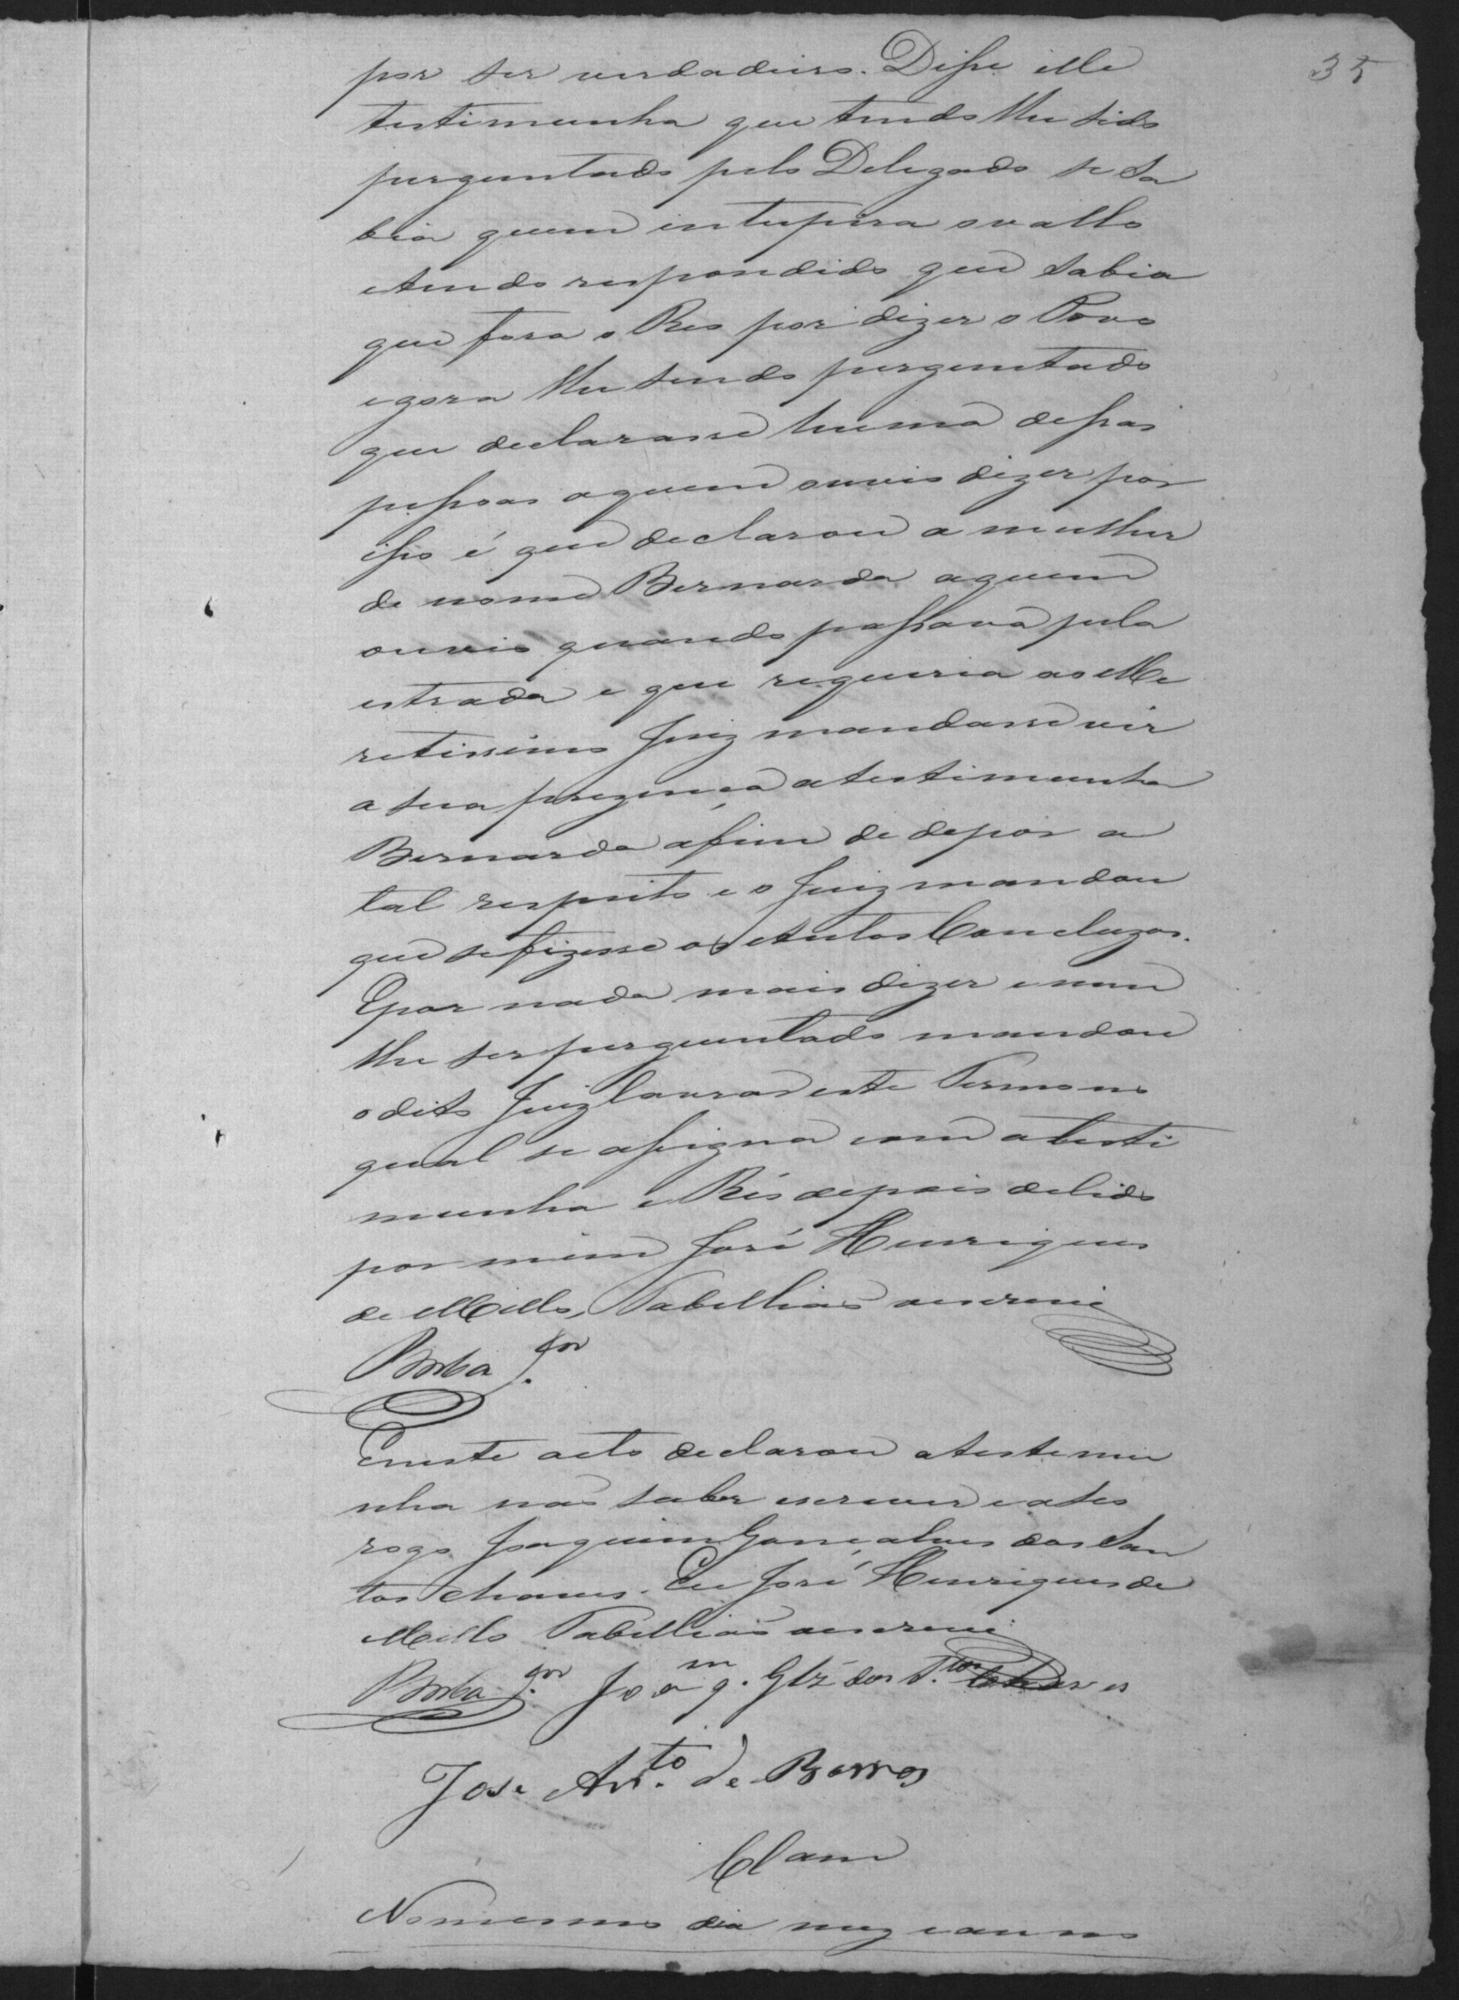 35
por ser verdadeiro. Disse elle
testimunha que tendo lhe sido
perguntado pelo Delegado se sa
bia quem intupira o vallo
e tendo respondido que sabia
que fora o Reo por dizer o Povo
e gora lhe sendo perguntado
que declarasse huma dessas
pessoas a quem ouvio dizer por
isso é que declarou a mulher
de nome Bernarda a quem
ouvio quando passava pela
estrada e que requeria ao Me
retissimo Juiz mandasse vir
a sua prezença a testimunha
Bernarda afim de depor a
tal respeito e o Juiz mandou
que se fizesse os Autos Concluzos.
E por nada mais dizer e nem
lhe ser perguntado mandou
o dito Juiz lavrar este Termo no
qual se assigna com a testi
munha e Réo depois de lido
por mim José Henriques
de Mello, Tabellião a escrevi
Borba Jor.
E neste acto declarou a testemu
nha não saber escrever e a seo
rogo Joaquim Gonçalves dos San
tos Chaves. Eu José Henriques de
Mello Tabellião a escrevi
Borba Jor. Joaqm. Glz dos Stos. Chaves
Jose Anto. de Barros
Clam
No mesmo dia mez e anno